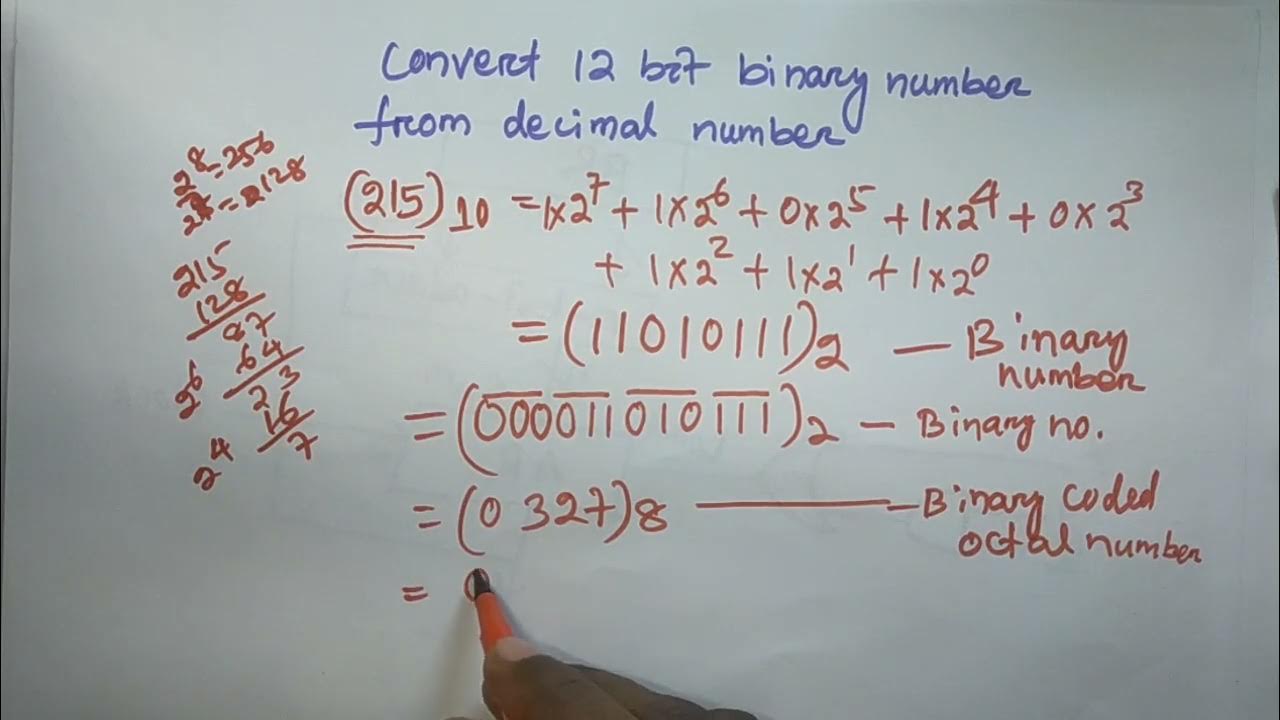 Convert 12 bit binary number
from decimal number
2⁸=256
2⁷=128
(215)₁₀ = 1×2⁷ + 1×2⁶ + 0×2⁵ + 1×2⁴ + 0×2³
+ 1×2² + 1×2¹ + 1×2⁰
215
128
87
2⁶ 64
23
2⁴ 16
7
= (11010111)₂ — Binary number
= (000011010111)₂ — Binary no.
= (0 327)₈ — Binary coded octal number
=